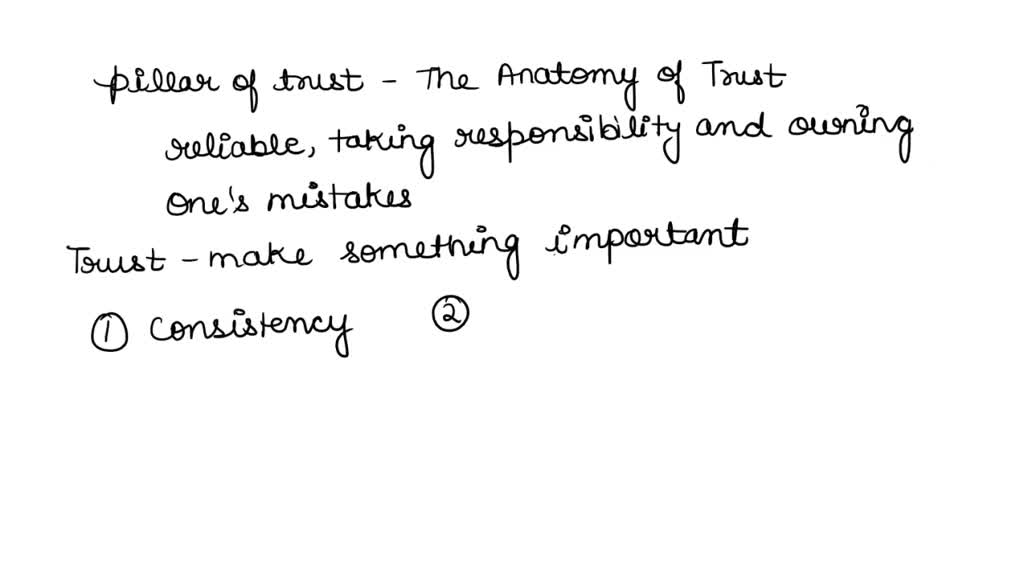 pillar of trust - The Anatomy of Trust
reliable, taking responsibility and owning
one's mistakes
Trust - make something important
① consistency ②